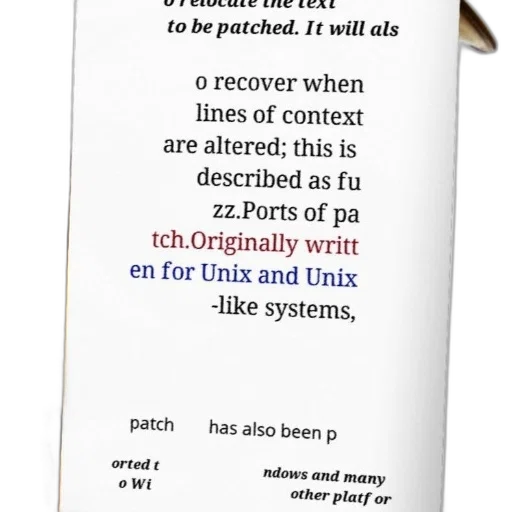 o relocate the text
to be patched. It will als
o recover when
lines of context
are altered; this is
described as fu
zz.Ports of pa
tch.Originally writt
en for Unix and Unix
-like systems,
patch has also been p
orted t
o Wi
ndows and many
other platfor